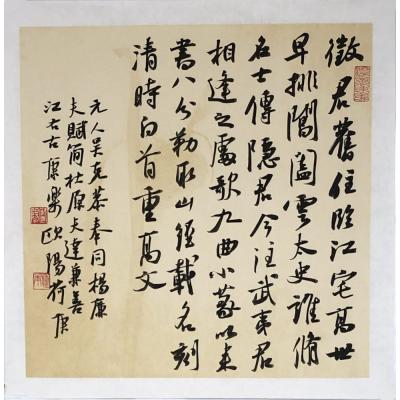 徵君舊住臨江宅高世
早排閶闔雲太史誰脩
名士傳隱君今注武夷君
相逢之處歌九曲小篆以来
書八分勒取山經載名刻
清時白首重高文
元人吴克恭奉同楊廉
夫賦簡杜原夫達兼善
江右古樂歐陽荷庚